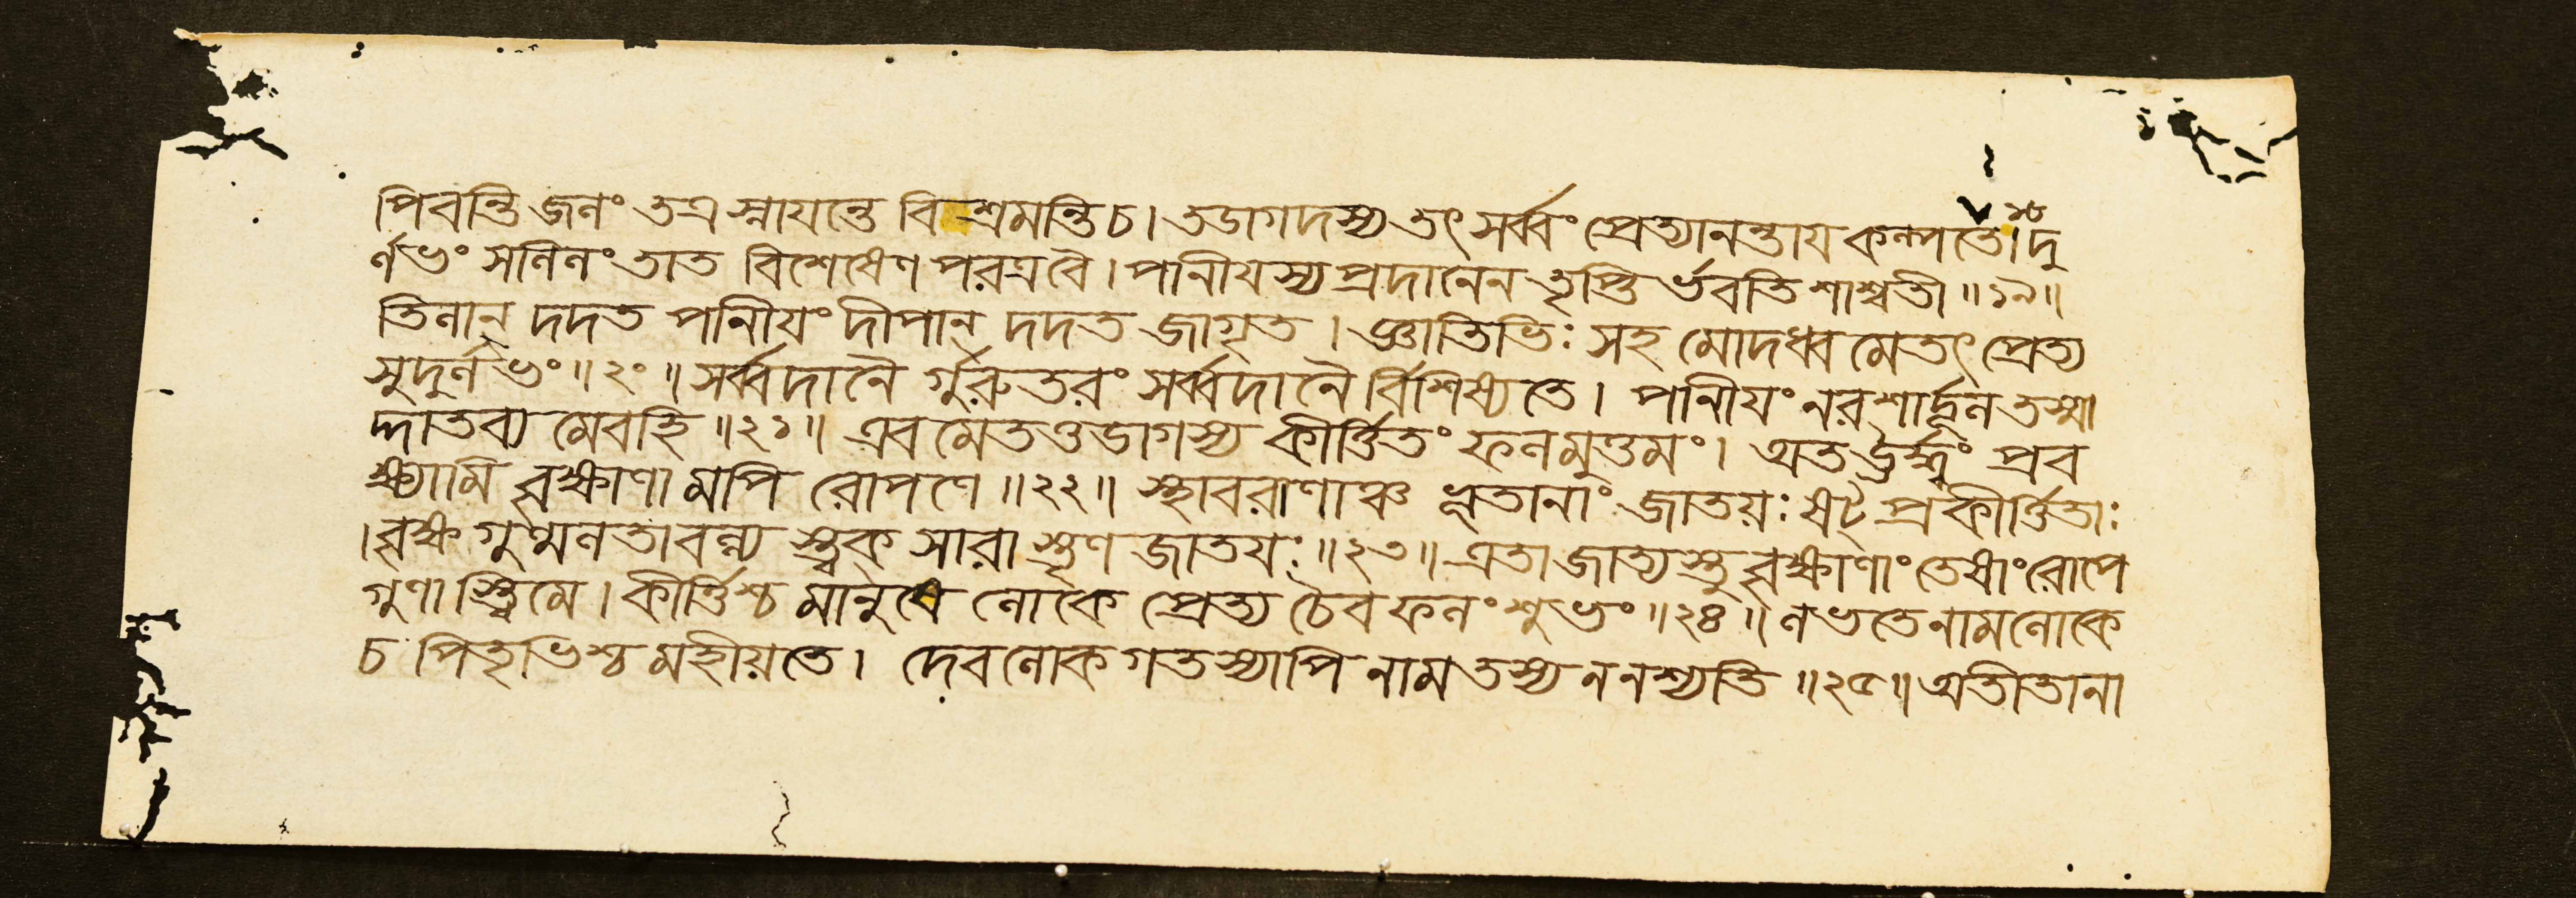 পিবন্তি জলং তত্র স্নাযন্তে বিশ্রমন্তি চ। তডাগদস্য তৎ সর্ব্বং প্রেত্যানন্তায কল্পতে।১৮ দু
র্লভং সলিলং তাত বিশেষেণ পরত্র বৈ। পানীযস্য প্রদানেন তৃপ্তি র্ভবতি শাশ্বতী॥১৯॥
তিলান্ দদত পানীযং দীপান্ দদত জাগৃত। জ্ঞাতিভিঃ সহ মোদধ্বমেতৎ প্রেত্য
সুদুর্লভং॥২০॥ সর্ব্বদানৈ র্গুরুতরং সর্ব্বদানৈ র্বিশিষ্যতে। পানীযং নরশার্দ্দূল তস্মা
দ্দাতব্য মেবহি॥২১॥ এবমেতত্তডাগস্য কীর্ত্তিতং ফলমুত্তমং। অত ঊর্দ্ধ্বং প্রব
ক্ষ্যামি বৃক্ষাণামপি রোপণে॥২২॥ স্থাবরাণাঞ্চ ভূতানাং জাতয়ঃ ষট্ প্রকীর্ত্তিতাঃ
।বৃক্ষ গুল্মলতাবল্ল্য স্ত্বকসারা স্তৃণ জাতযঃ॥২৩॥ এতা জাত্যস্তু বৃক্ষাণাং তেষাং রোপে
গুণা স্ত্বিমে। কীর্ত্তিশ্চ মানুষে লোকে প্রেত্য চৈব ফলং শুভং॥২৪॥ লভতে নামলোকে
চ পিতৃভিশ্চ মহীয়তে। দেবলোকগতস্যাপি নাম তস্য ন নশ্যতি॥২৫॥ অতীতানা